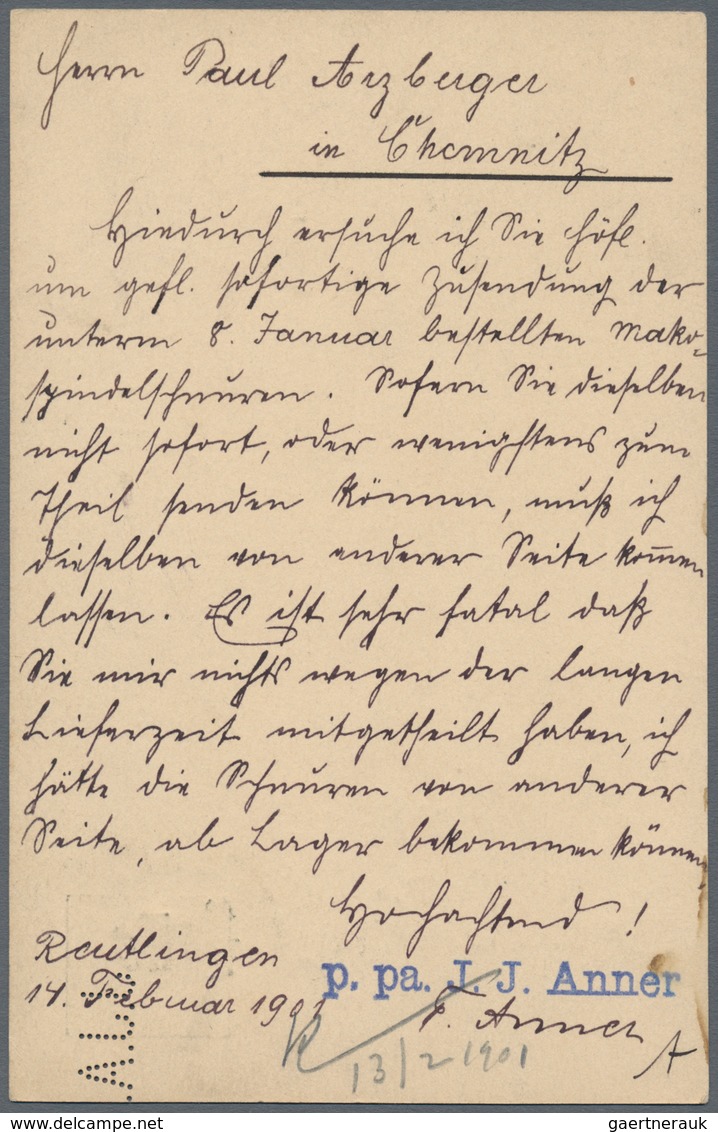 Herrn Paul Arzberger
in Chemnitz
Hiedurch ersuche ich Sie höfl.
um gefl. sofortige Zusendung der
unterm 8. Januar bestellten Mako-
spindelschnuren. Sofern Sie dieselben
nicht sofort, oder wenigstens zum
Theil senden können, muß ich
dieselben von anderer Seite kom̅en
lassen. Es ist sehr fatal daß
Sie mir nichts wegen der langen
Lieferzeit mitgetheilt haben, ich
hätte die Schnuren von anderer
Seite, ab Lager bekommen können.
Hochachtend!
Reutlingen
14. Februar 1901
p. pa. J. J. Anner
F. Anner
13/2 1901
A
gaertnerauk